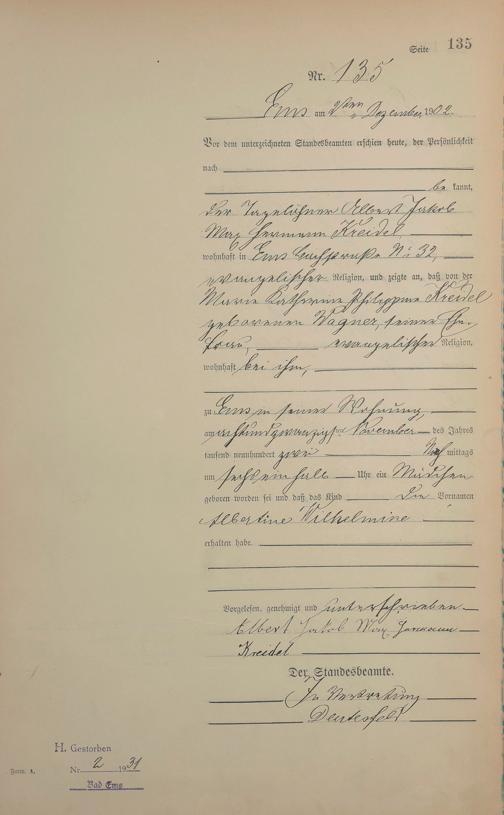 Seite 135
Nr. 135
Ems am 2ten Dezember 1902.
Vor dem unterzeichneten Standesbeamten erschien heute, der Persönlichkeit
nach
be kannt,
der Tagelöhner Albert Jakob
Max Hermann Kreidel
wohnhaft in Ems Bachstraße No 32,
evangelischer Religion, und zeigte an, daß von der
Marie Katharine Philippine Kreidel
geborenen Wagner, seiner Ehe-
frau, evangelischer Religion,
wohnhaft bei ihm,
zu Ems in seiner Wohnung,
am achtundzwanzigsten November des Jahres
tausend neunhundert zwei Nachmittags
um sechseinhalb Uhr ein Mädchen
geboren worden sei und daß das Kind die Vornamen
Albertine Wilhelmine
erhalten habe.
Vorgelesen, genehmigt und unterschrieben
Albert Jakob Max Hermann
Kreidel
Der Standesbeamte.
In Vertretung
H. Gestorben
Nr. 2 1931
Bad Ems
Form. A.